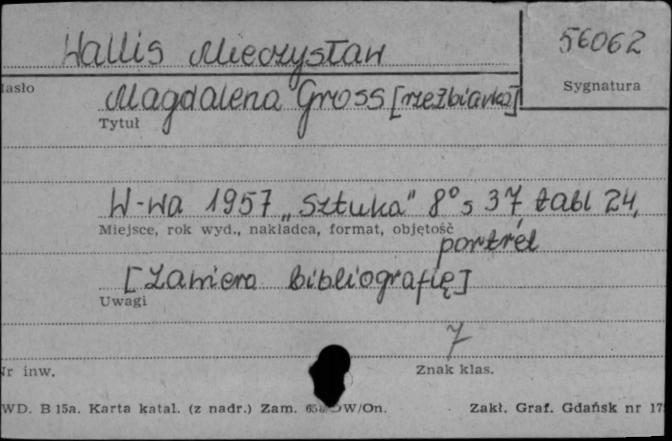 Wallis Mieczysław
56062
Sygnatura
Hasło
Magdalena Gross [rzeźbiarka]
Tytuł
W-wa 1957 „Sztuka" 8° s 37, tabl 24,
Miejsce, rok wyd., nakładca, format, objętość
portret
[Zawiera bibliografię]
Uwagi
7
Nr inw.
Znak klas.
WD. B 15a. Karta katal. (z nadr.) Zam. W/On.
Zakł. Graf. Gdańsk nr 17